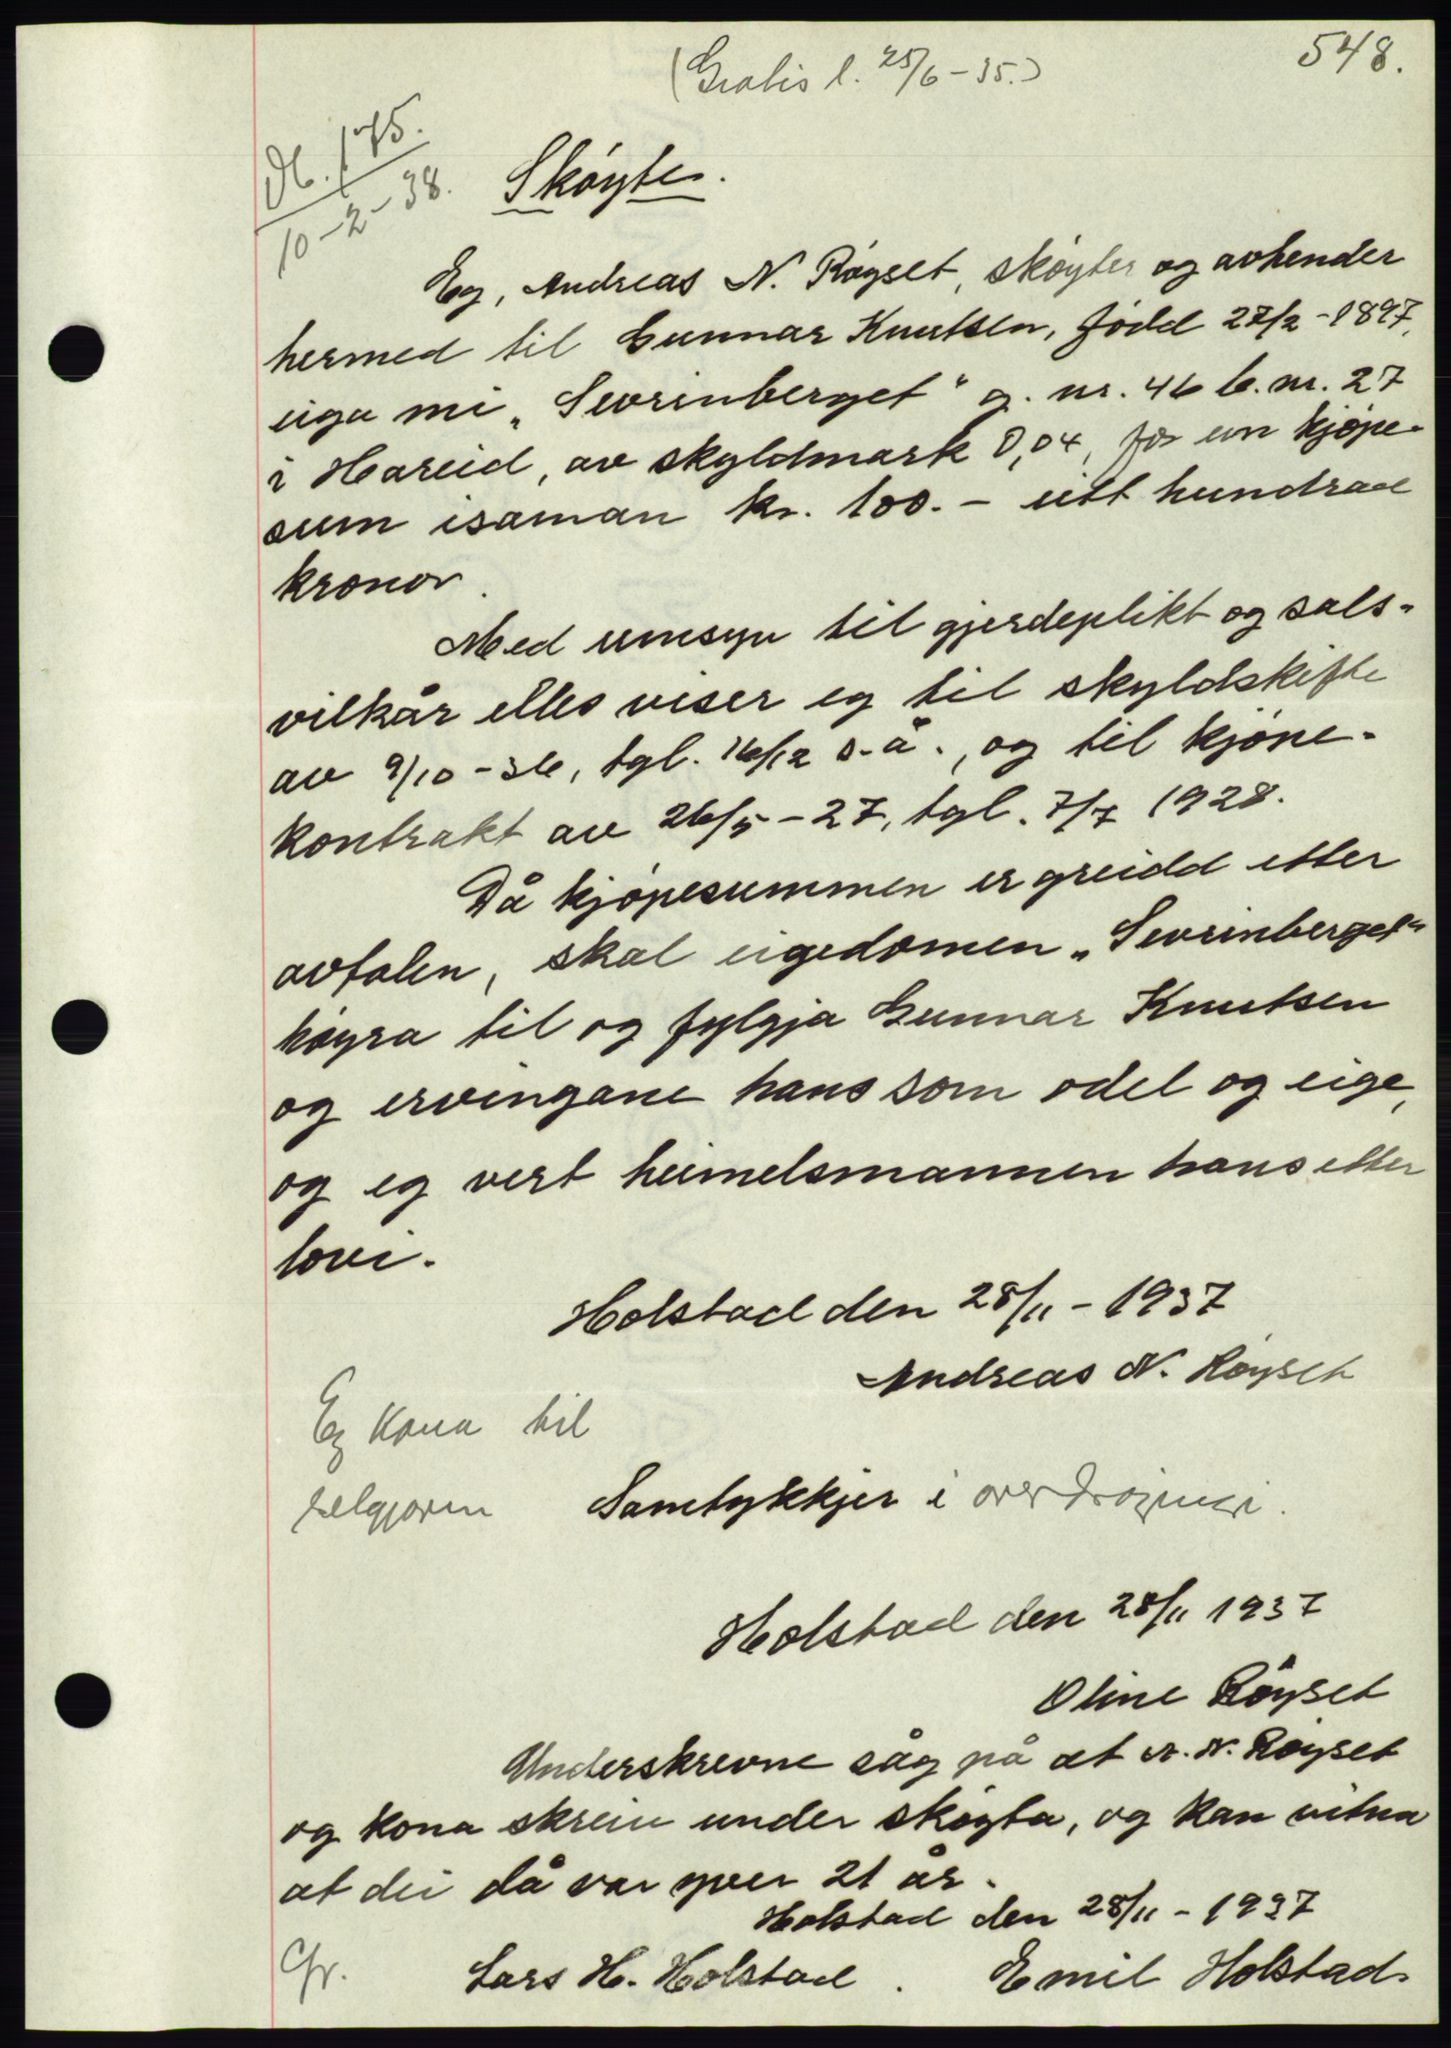 548.
(Gratis l. 25/6-35.)
Db. 175.
10-2-38.
Skøyte.
Eg, Andreas N. Røyset, skøyter og avhender
hermed til Gunnar Knutsen, fødd 27/2-1897,
eiga mi "Sevrinberget" g. nr. 46 b. nr. 27
i Hareid, av skyldmark 0,04, for ein kjøpe-
sum isaman kr. 100.- eitt hundrad
kronor.
Med umsyn til gjerdeplikt og sals-
vilkår elles viser eg til skyldskifte
av 9/10-36, tgl. 16/12 s.å., og til kjøpe-
kontrakt av 26/5-27, tgl. 7/7 1928.
Då kjøpesummen er greidd etter
avtalen, skal eigedomen "Sevrinberget"
høyra til og fylgja Gunnar Knutsen
og ervingane hans som odel og eige,
og eg vert heimelsmannen hans etter
lovi.
Holstad den 28/11-1937
Andreas N. Røyset
Eg kona til
seljaren Samtykkjer i overdragingi.
Holstad den 28/11 1937
Oline Røyset
Underskrevne såg på at A. N. Røyset
og kona skreiv under skøyta, og kan vitna
at dei då var yver 21 år.
Holstad den 28/11-1937
Gr. Lars H. Holstad. Emil Holstad.